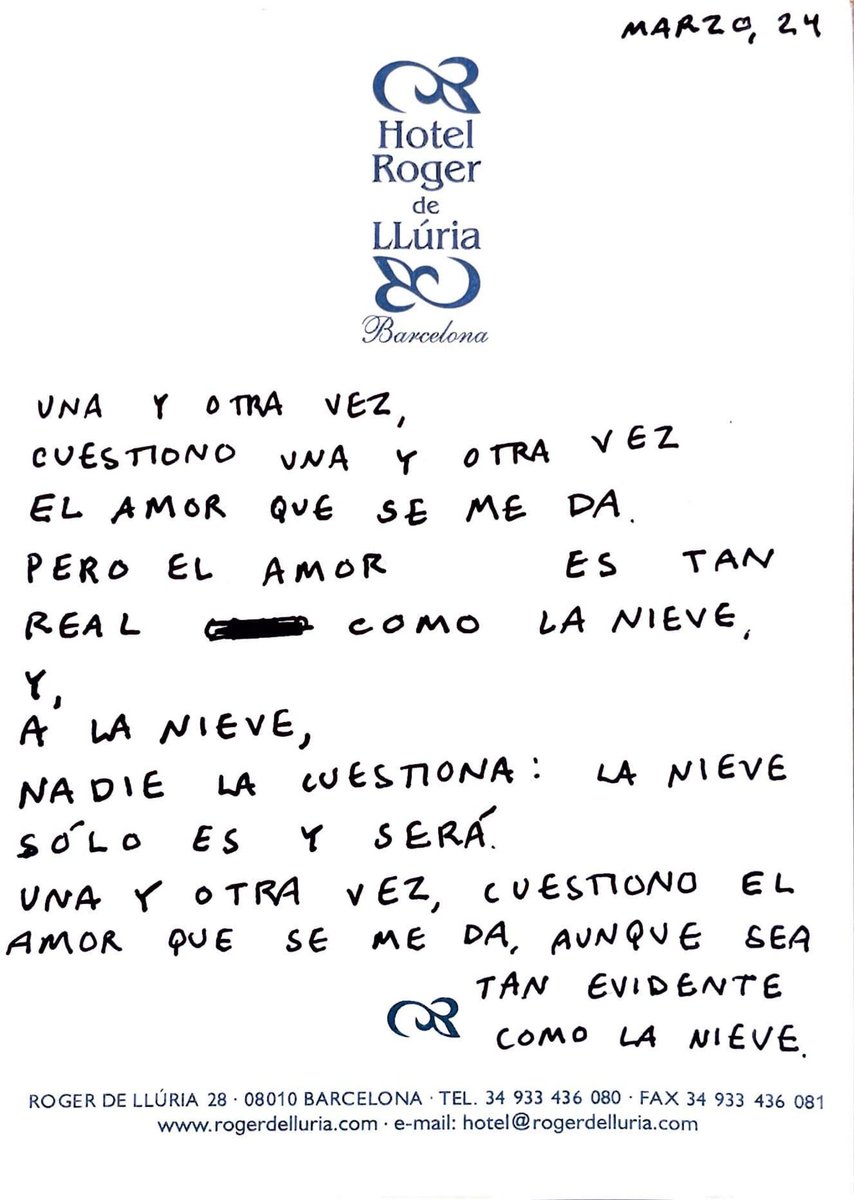 MARZO, 24
Hotel
Roger
de
LLúria
Barcelona
UNA Y OTRA VEZ,
CUESTIONO UNA Y OTRA VEZ
EL AMOR QUE SE ME DA.
PERO EL AMOR ES TAN
REAL COMO LA NIEVE,
Y,
A LA NIEVE,
NADIE LA CUESTIONA: LA NIEVE
SÓLO ES Y SERÁ.
UNA Y OTRA VEZ, CUESTIONO EL
AMOR QUE SE ME DA, AUNQUE SEA
TAN EVIDENTE
COMO LA NIEVE.
ROGER DE LLÚRIA 28 · 08010 BARCELONA · TEL. 34 933 436 080 · FAX 34 933 436 081
www.rogerdelluria.com · e-mail: hotel@rogerdelluria.com